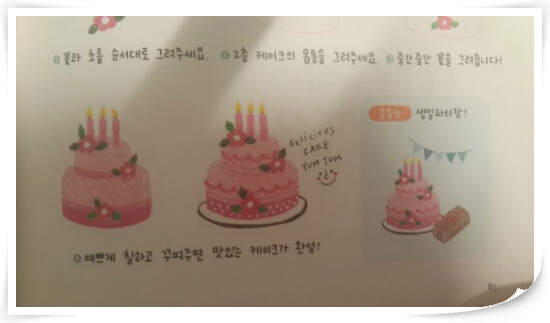 ① 꽃과 초를 순서대로 그려주세요.
② 2층 케이크의 몸통을 그려주세요.
③ 중간중간 꽃을 그려줍니다!
delicious
CAKE
YUM YUM
응용컷
생일파티장!
④ 예쁘게 칠하고 꾸며주면 맛있는 케이크가 완성!
85